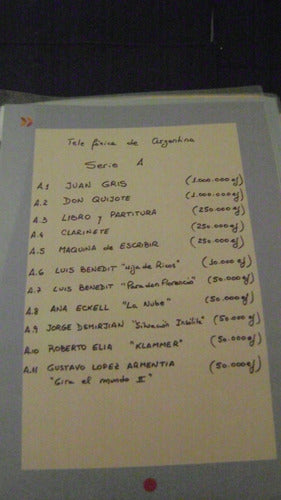 Telefónica de Argentina
Serie A
A.1 JUAN GRIS (1.000.000 ej)
A.2 DON QUIJOTE (1.000.000 ej)
A.3 LIBRO y PARTITURA (250.000 ej)
A.4 CLARINETE (250.000 ej)
A.5 MAQUINA de ESCRIBIR (250.000 ej)
A.6 LUIS BENEDIT "Hija de Rivas" (50.000 ej)
A.7 LUIS BENEDIT "Para don Florencio" (50.000 ej)
A.8 ANA ECKELL "La Nube" (50.000 ej)
A.9 JORGE DEMIRJIAN "Situación Insólita" (50.000 ej)
A.10 ROBERTO ELIA "KLAMMER" (50.000 ej)
A.11 GUSTAVO LOPEZ ARMENTIA (50.000 ej)
"Gira el mundo II"